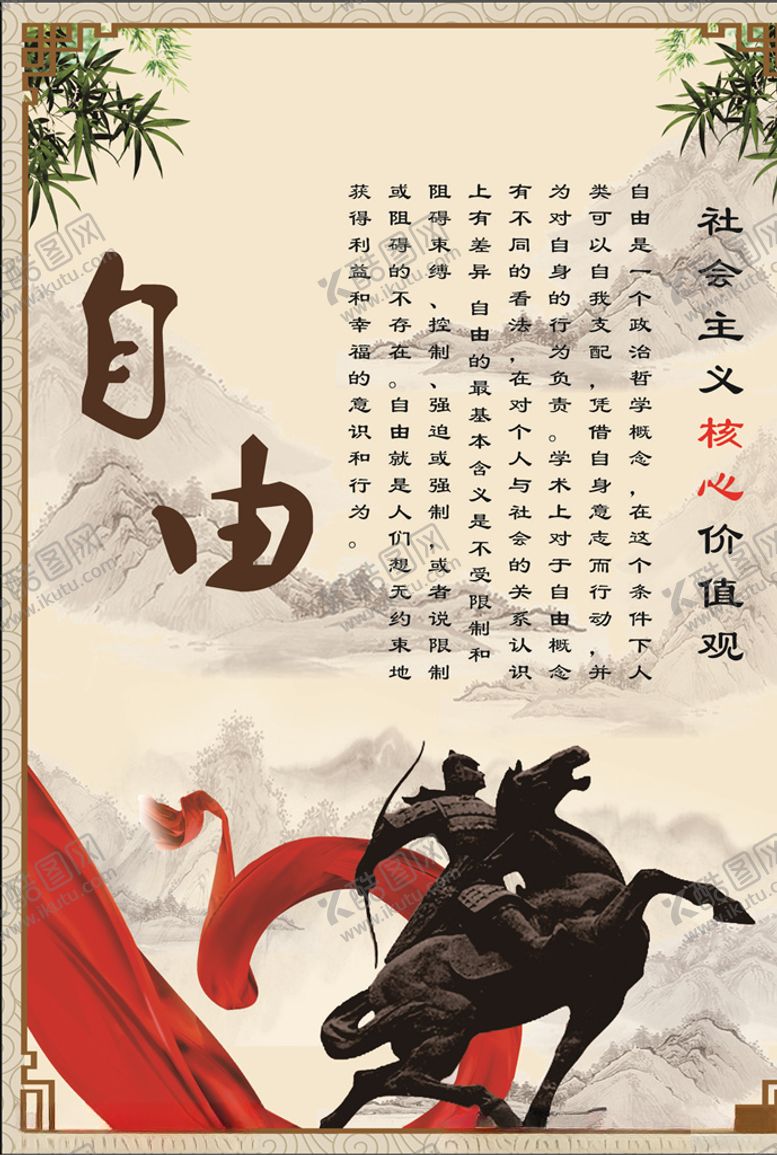 社会主义核心价值观
自由是一个政治哲学概念,在这个条件下人
类可以自我支配,凭借自身意志而行动,并
为对自身的行为负责。学术上对于自由概念
有不同的看法,在对个人与社会的关系认识
上有差异 自由的最基本含义是不受限制和
阻碍束缚、控制、强迫或强制,或者说限制
或阻碍的不存在。自由就是人们想无约束地
获得利益和幸福的意识和行为。
自由
酷图网
www.ikutu.com